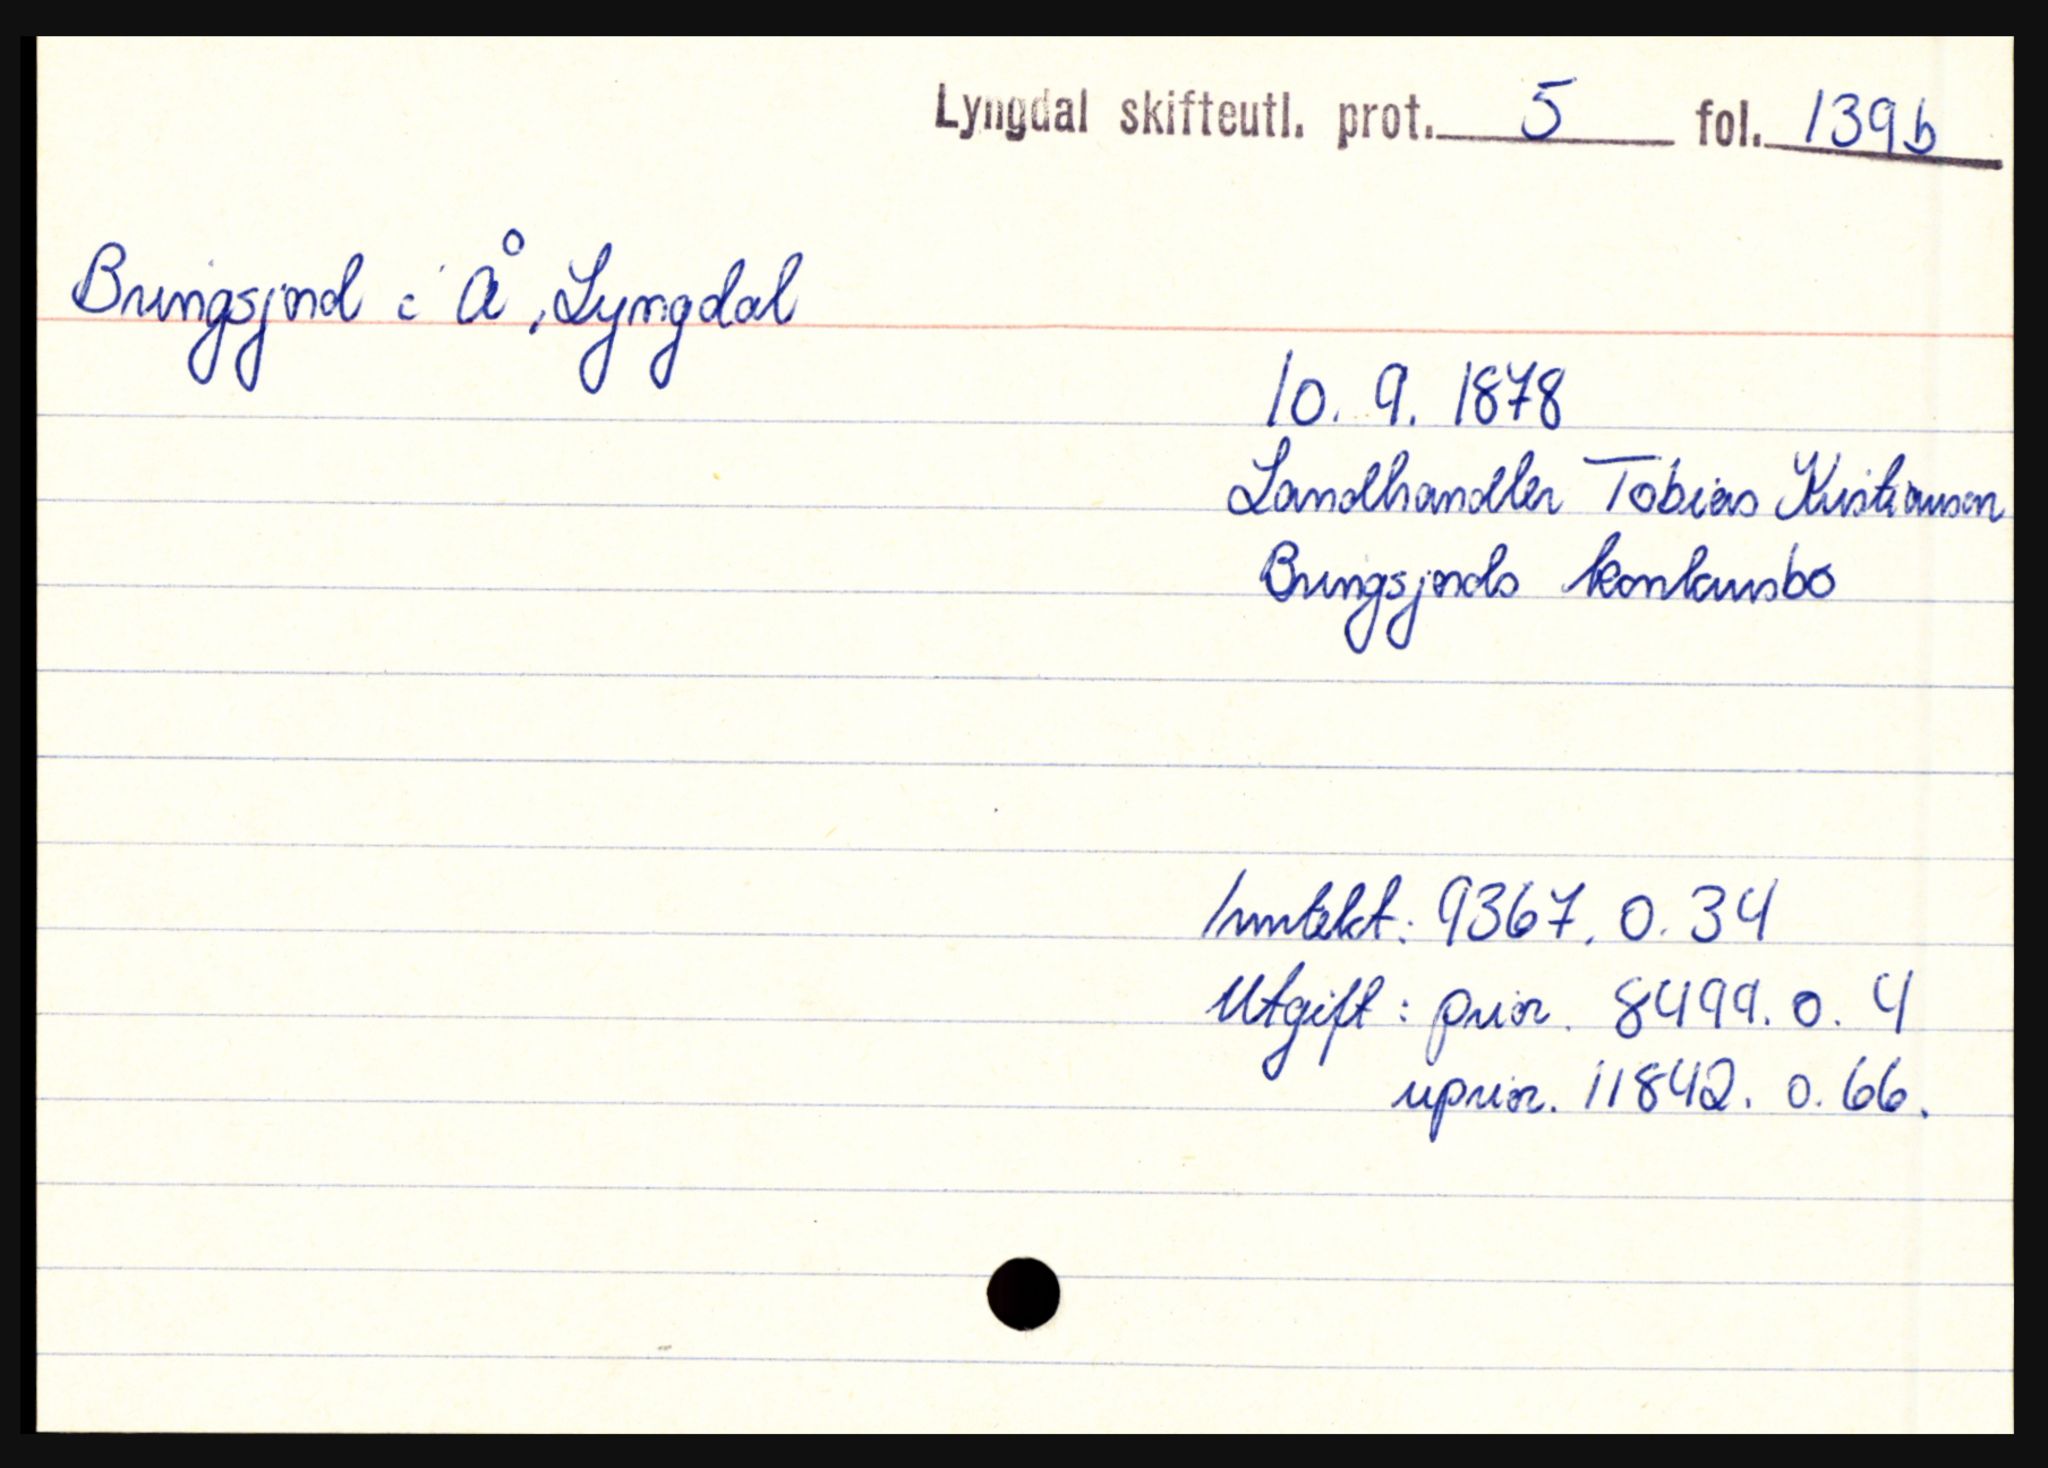 Lyngdal skifteutl. prot. 5 fol. 139b
Bringsjord i Å, Lyngdal
10. 9. 1878
Landhandler Tobias Kristiansen
Bringsjords konkursbo
Inntekt: 9367. 0. 34
Utgift: prior. 8499. 0. 4
uprior. 11842. 0. 66.